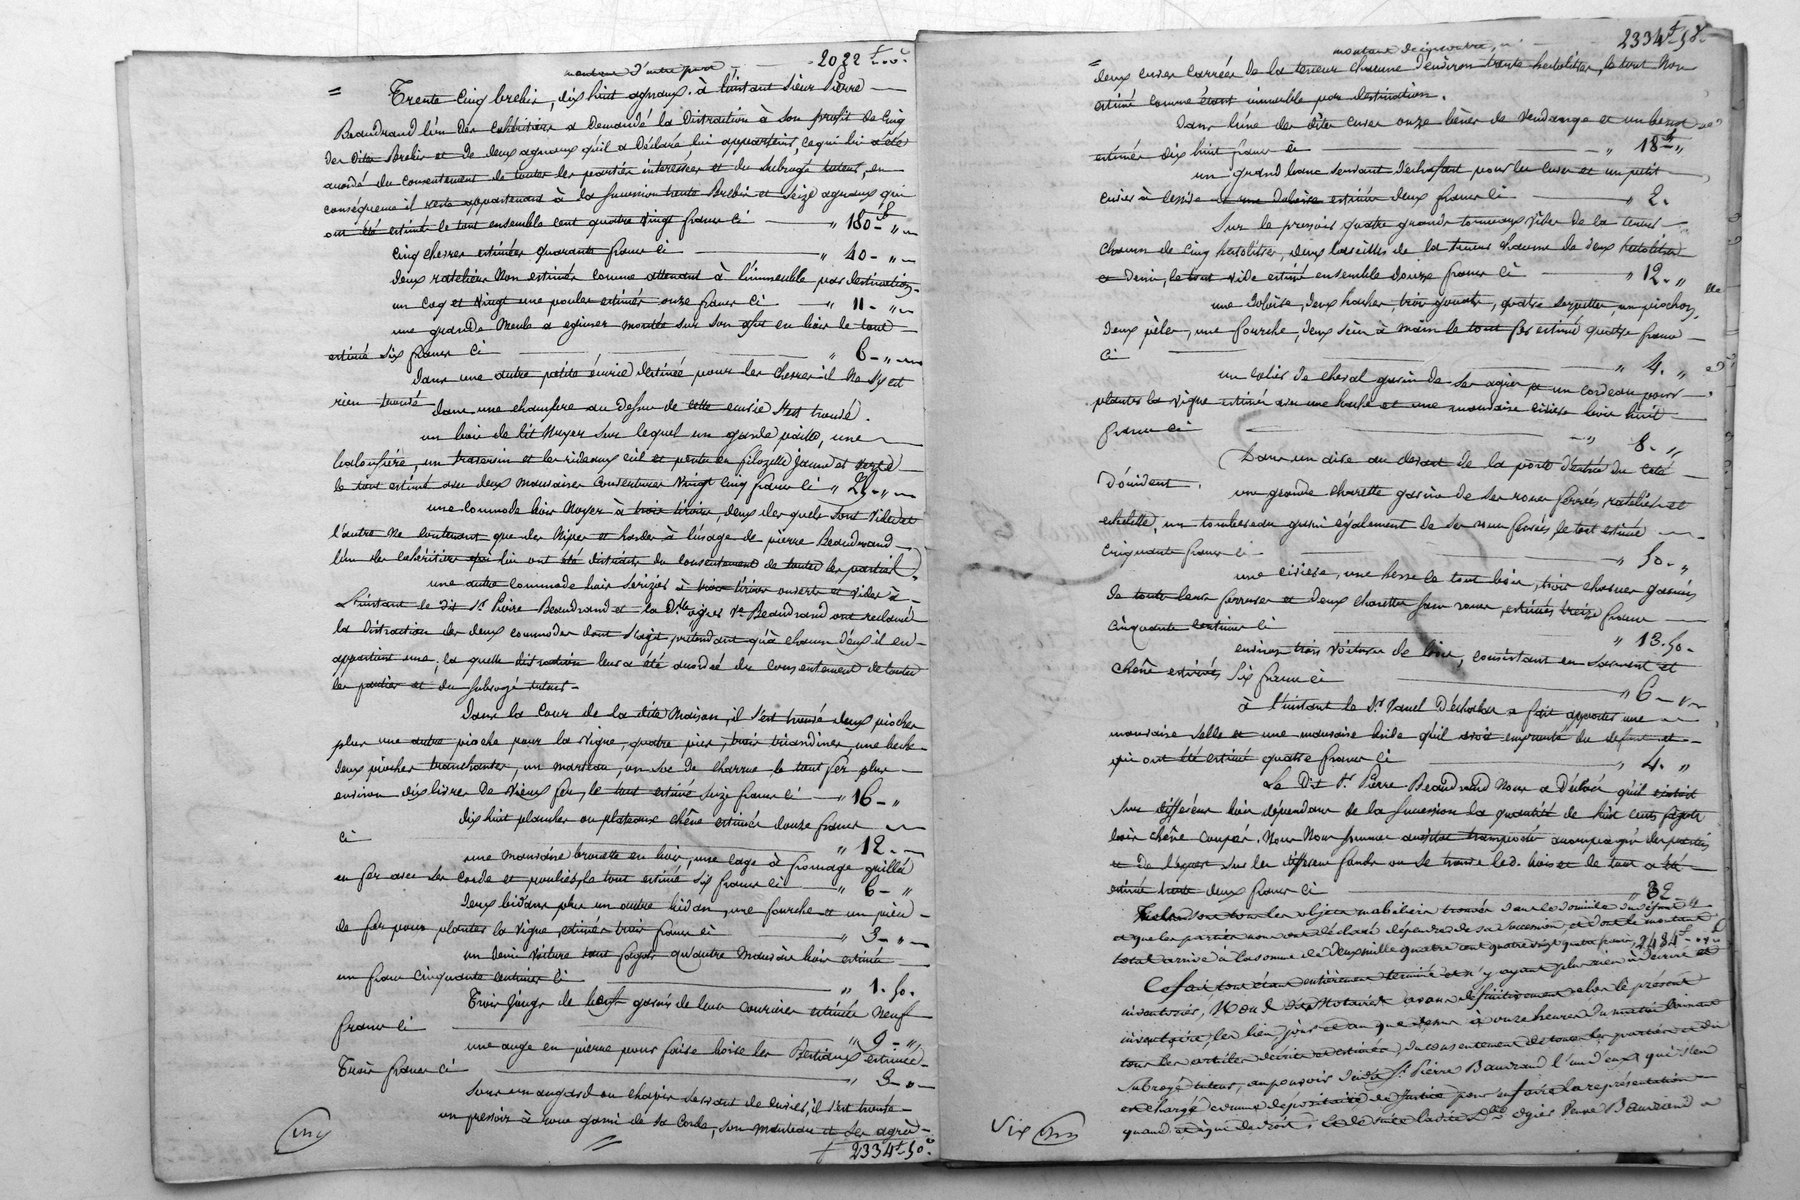 montant d'autre part 2022 f „ c
= Trente cinq brebis, dix huit agneaux. à l'instant sieur Pierre
Beaudrand l'un des exhibitaires a demandé la distraction à son profit de cinq
des dites brebis et de deux agneaux qu'il a déclaré lui appartenir, ce qui lui a été
accordé du consentement de toutes les parties intéressées et du subrogé tuteur, en
conséquence il reste appartenant à la succession trente brebis et seize agneaux qui
ont été estimés le tout ensemble cent quatre vingt francs ci „ 180 f „
cinq chevres estimées quarante francs ci „ 40 - „
deux rateliers non estimés comme attenant à l'immeuble par destination.
un coq et vingt une poules estimés onze francs ci „ 11 - „
une grande meule a eguiser montée sur son en bois le tout
estimé six francs ci „ 6 - „
Dans une autre petite écurie destinée pour les chevres il ne s'y est
rien trouvé
dans une chambre au dessus de cette écurie s'est trouvé.
un bois de lit noyer sur lequel un garde paille, une
, un traversin et les rideaux ciel et pente en filozelle jaune et verte
le tout estimé avec deux mauvaises couvertures vingt cinq francs ci „ 25 - „
une commode bois noyer à trois tiroirs, deux desquels sont vides et
l'autre ne contenant que des nipes et hardes à l'usage de pierre Beaudrand
l'un des exhibitaires qui lui ont été distraits du consentement de toutes les parties.
une autre commode bois serizier à trois tiroirs ouverte et vides à
L'instant le dit Sr Pierre Beaudrand et la Dlle ogier Ve Beaudrand ont reclamé
la distraction des deux commodes dont s'agit, prétendant qu'à chacun d'eux il en
appartient une, la quelle distraction leur a été accordée du consentement de toutes
les parties et du subrogé tuteur.
Dans la cour de la dite maison, il s'est trouvé deux pioches
plus une autre pioche pour la vigne, quatre pics, trois triandines, une beche
deux pioches tranchantes, un marteau, un soc de charrue le tout fer plus
environ dix livres de vieux fer, le tout estimé seize francs ci „ 16 - „
dix huit planches ou plateaux chêne estimés douze francs
ci „ 12 -
une mauvaise brouette en bois, une cage à fromage grillée
en fer avec ses corde et poulies, le tout estimé six francs ci „ 6 - „
deux bidans plus un autre bidan, une fourche et un pieu
de fer pour plantes la vigne, estimés trois francs ci „ 3 - „
un demi voiture tant fagots qu'autre mauvais bois estimée
un franc cinquante centimes ci „ 1. 50.
Trois jougs de boeufs garnis de leur courroies estimés neuf
francs ci „ 9 - „
une auge en pierre pour faire boire les bestiaux estimée
Trois francs ci „ 3 - „
Sous un angard ou chapis servant de cuvier, il s'est trouvé
un pressoir à roue garni de sa corde, son manteau et ses agrès
2334 f 50 c
montant de ci contre, ci 2334 f 50 c
= deux cuves carrées de la teneur chacune d'environ trente hectolitres, le tout non
estimé comme étant immeuble par destination.
Dans l'une des dites cuves onze bènes de vendange et un
estimés dix huit francs ci „ 18 f „
un grand banc servant d'échafaut pour les cuves et un petit
cuvier à lessive et une estimés deux francs ci „ 2.
Sur le pressoir quatre grands tonneaux vides de la teneur
chacun de cinq hectolitres, deux barsailles de la teneur chacune de deux hectolitres
et demi, le tout vide estimé ensemble douze francs ci „ 12. „
une doloire, deux haches, trois gouets, quatre serpettes, un piochon,
deux pèles, une fourche, deux scies à main le tout fer estimé quatre francs
ci „ 4. „
un colier de cheval garni de ses agrès et un cordeau pour
plantes la vigne estimés avec une hache et une mauvaise civiere bois huit
francs ci „ 8. „
Dans un aire au devant de la porte d'entrée du coté
d'occident.
une grande charette garnie de ses roues ferrées, rateliers et
echelette, un tombereau garni également de ses roues ferrées le tout estimé
cinquante francs ci „ 50. „
une civiere, une herse le tout bois, trois charues garnies
de toute leurs ferrures et deux charettes sans roues, estimés treize francs
cinquante centimes ci „ 13. 50.
environ trois voitures de bois, consistant en sarment et
chêne estimés six francs ci „ 6 - „
à l'instant le Sr a fait apporter une
mauvaise selle et une mauvaise bride qu'il avoit emprunté du défunt et
qui ont été estimé quatre francs ci „ 4. „
Le dit Sr Pierre Beaudrand nous a déclaré qu'il existait
sur différens bois dépendans de la succession la quantité de huit cents fagots
bois chêne coupés. Nous nous sommes aussitôt transporté accompagné des parties
et de l'expert sur les différens fonds ou se trouve led. bois et le tout a été
estimé trente deux francs ci „ 32
Tels sont tous les objets mobiliers trouvés dans le domicile du défunt
et que les parties nous ont déclaré dépendre de sa succession et dont le montant
total arrive à la somme de deux mille quatre cent quatre vingt quatre francs, 2484 f „ c
Ce fait tout étant entièrement terminé et n'y ayant plus rien à décrire et
inventorier, Nous dit Notaire avons définitivement clos le présent
inventaire, les lieu, jour et an que dessus à onze heures du matin laissant
tous les articles décrits et estimés, du consentement de toutes les parties et du
subrogé tuteur, au pouvoir dudit Sr Pierre Baudrand l'un d'eux qui s'en
est chargé comme dépositaire de justice pour en faire la représentation
quand et à qui de droit; et de suite ladite Dlle ogier Veuve Baudrand a